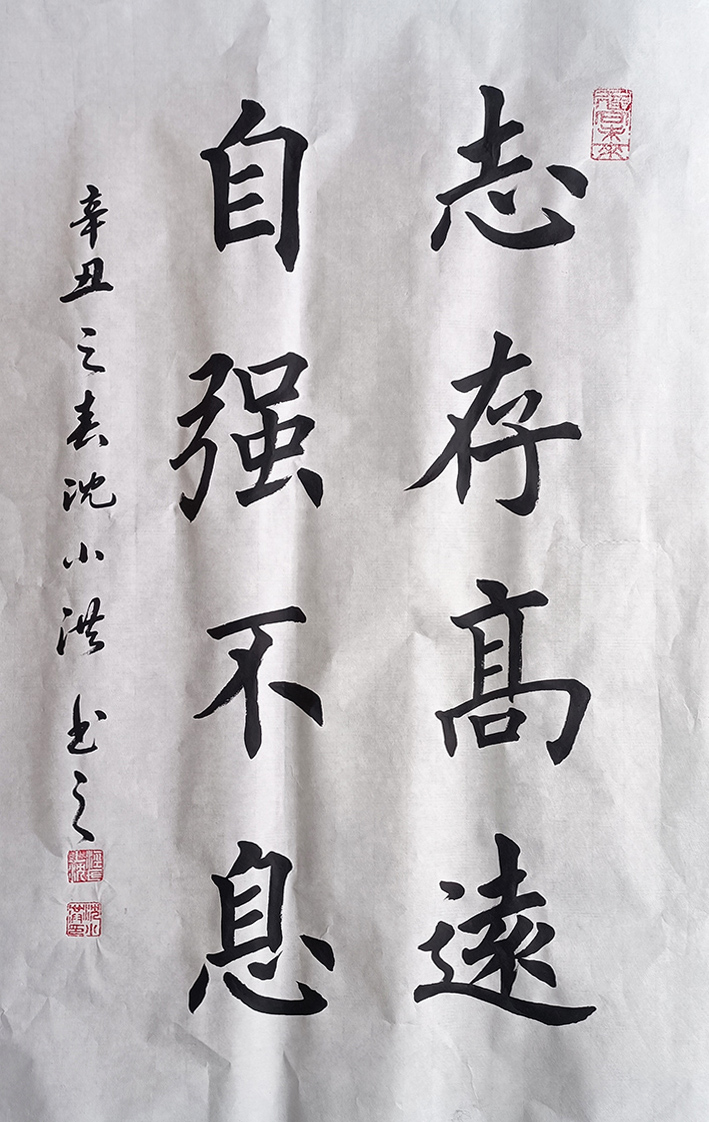 志存髙遠
自强不息
辛丑之春沈小洪书之